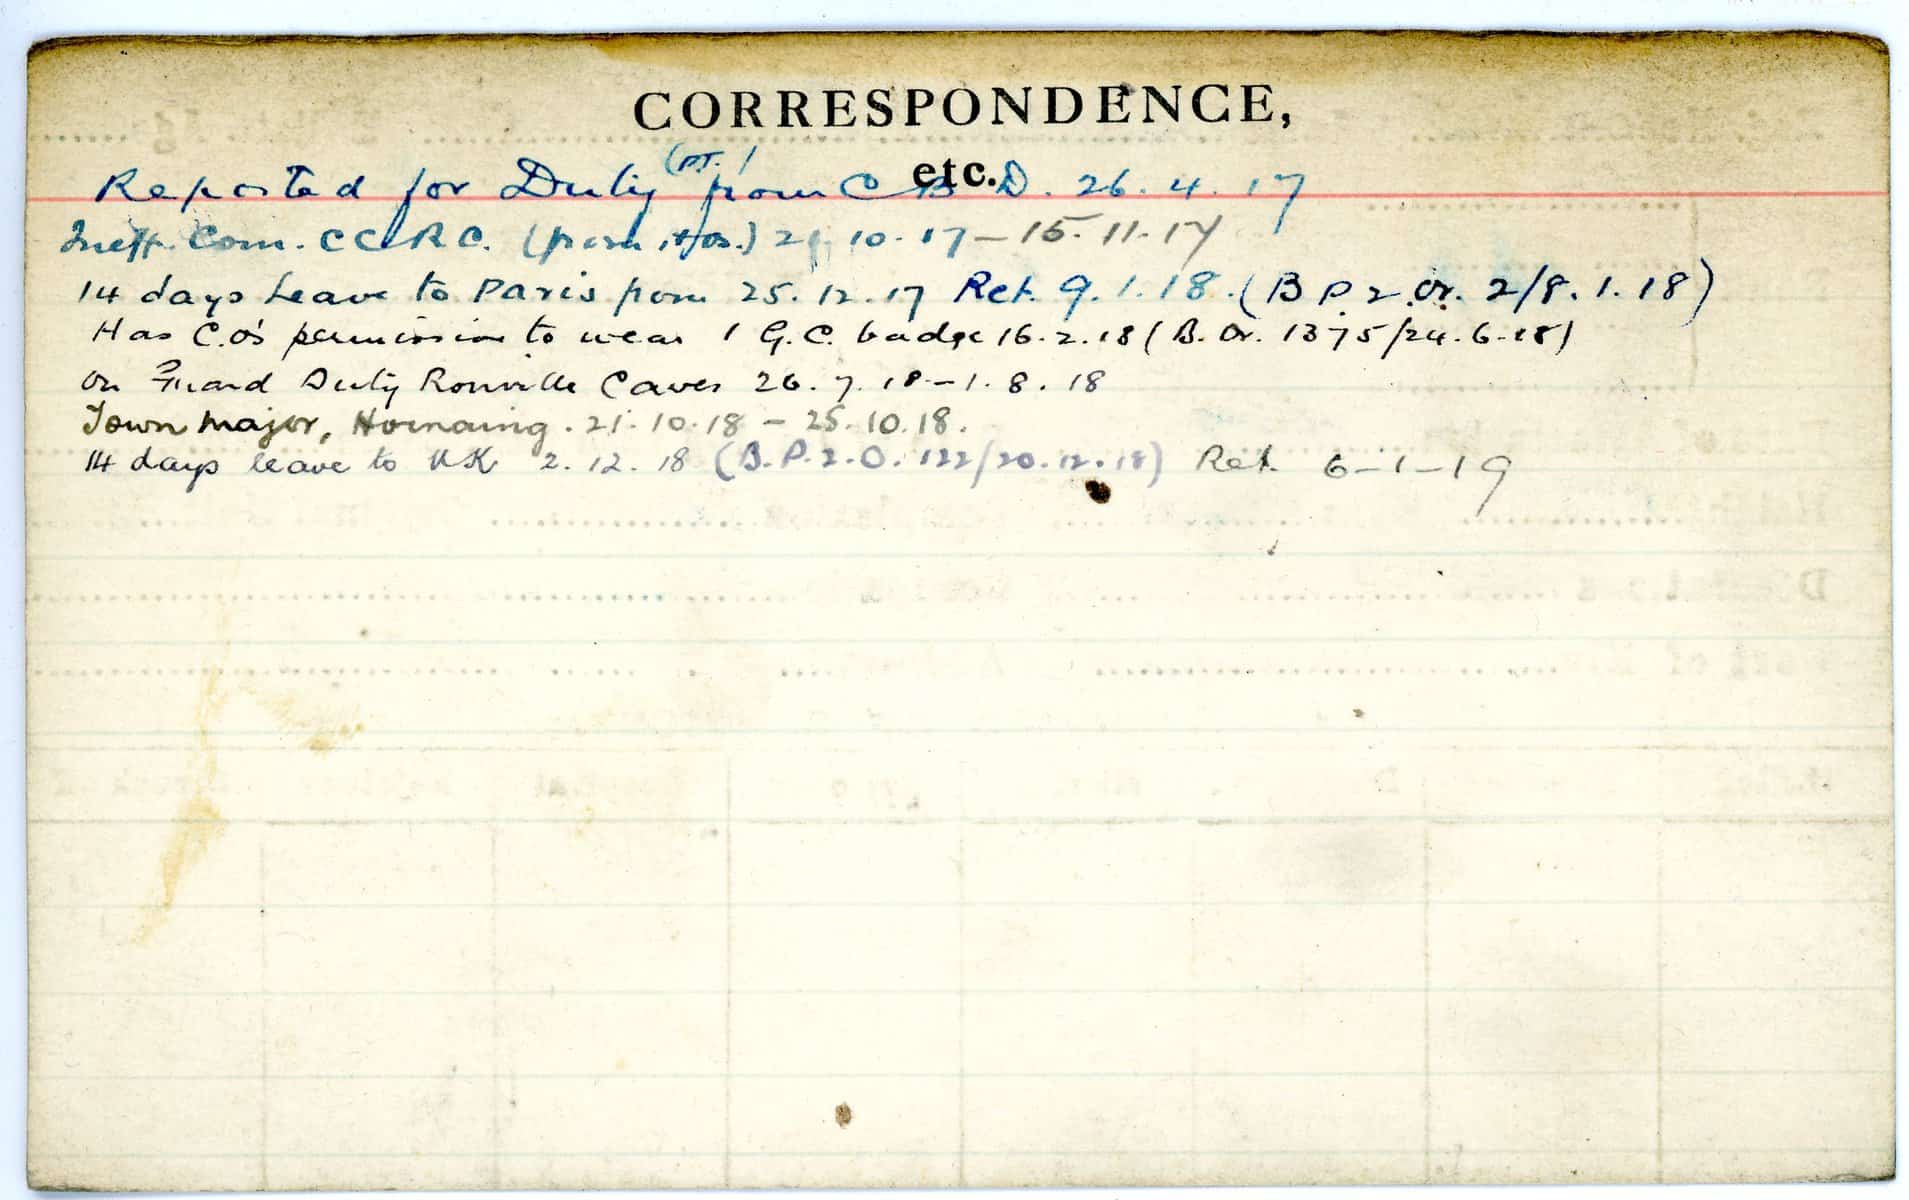 CORRESPONDENCE,
etc.
(PT.)
Reported for Duty from C B D. 26.4.17
Ineff. Com. C C R C. (from Hos.) 21.10.17 – 15.11.17
14 days Leave to Paris from 25.12.17 Ret. 9.1.18. (B P 2 Or. 2/8.1.18)
Has C.O's permission to wear 1 G.C. badge 16.2.18 (B. Or. 1375/24.6.18)
On Guard Duty Ronville Caves 26.7.18 – 1.8.18
Town Major, Hornaing. 21.10.18 – 25.10.18.
14 days leave to UK 2.12.18 (B.P.2.O. 122/20.12.18) Ret. 6-1-19